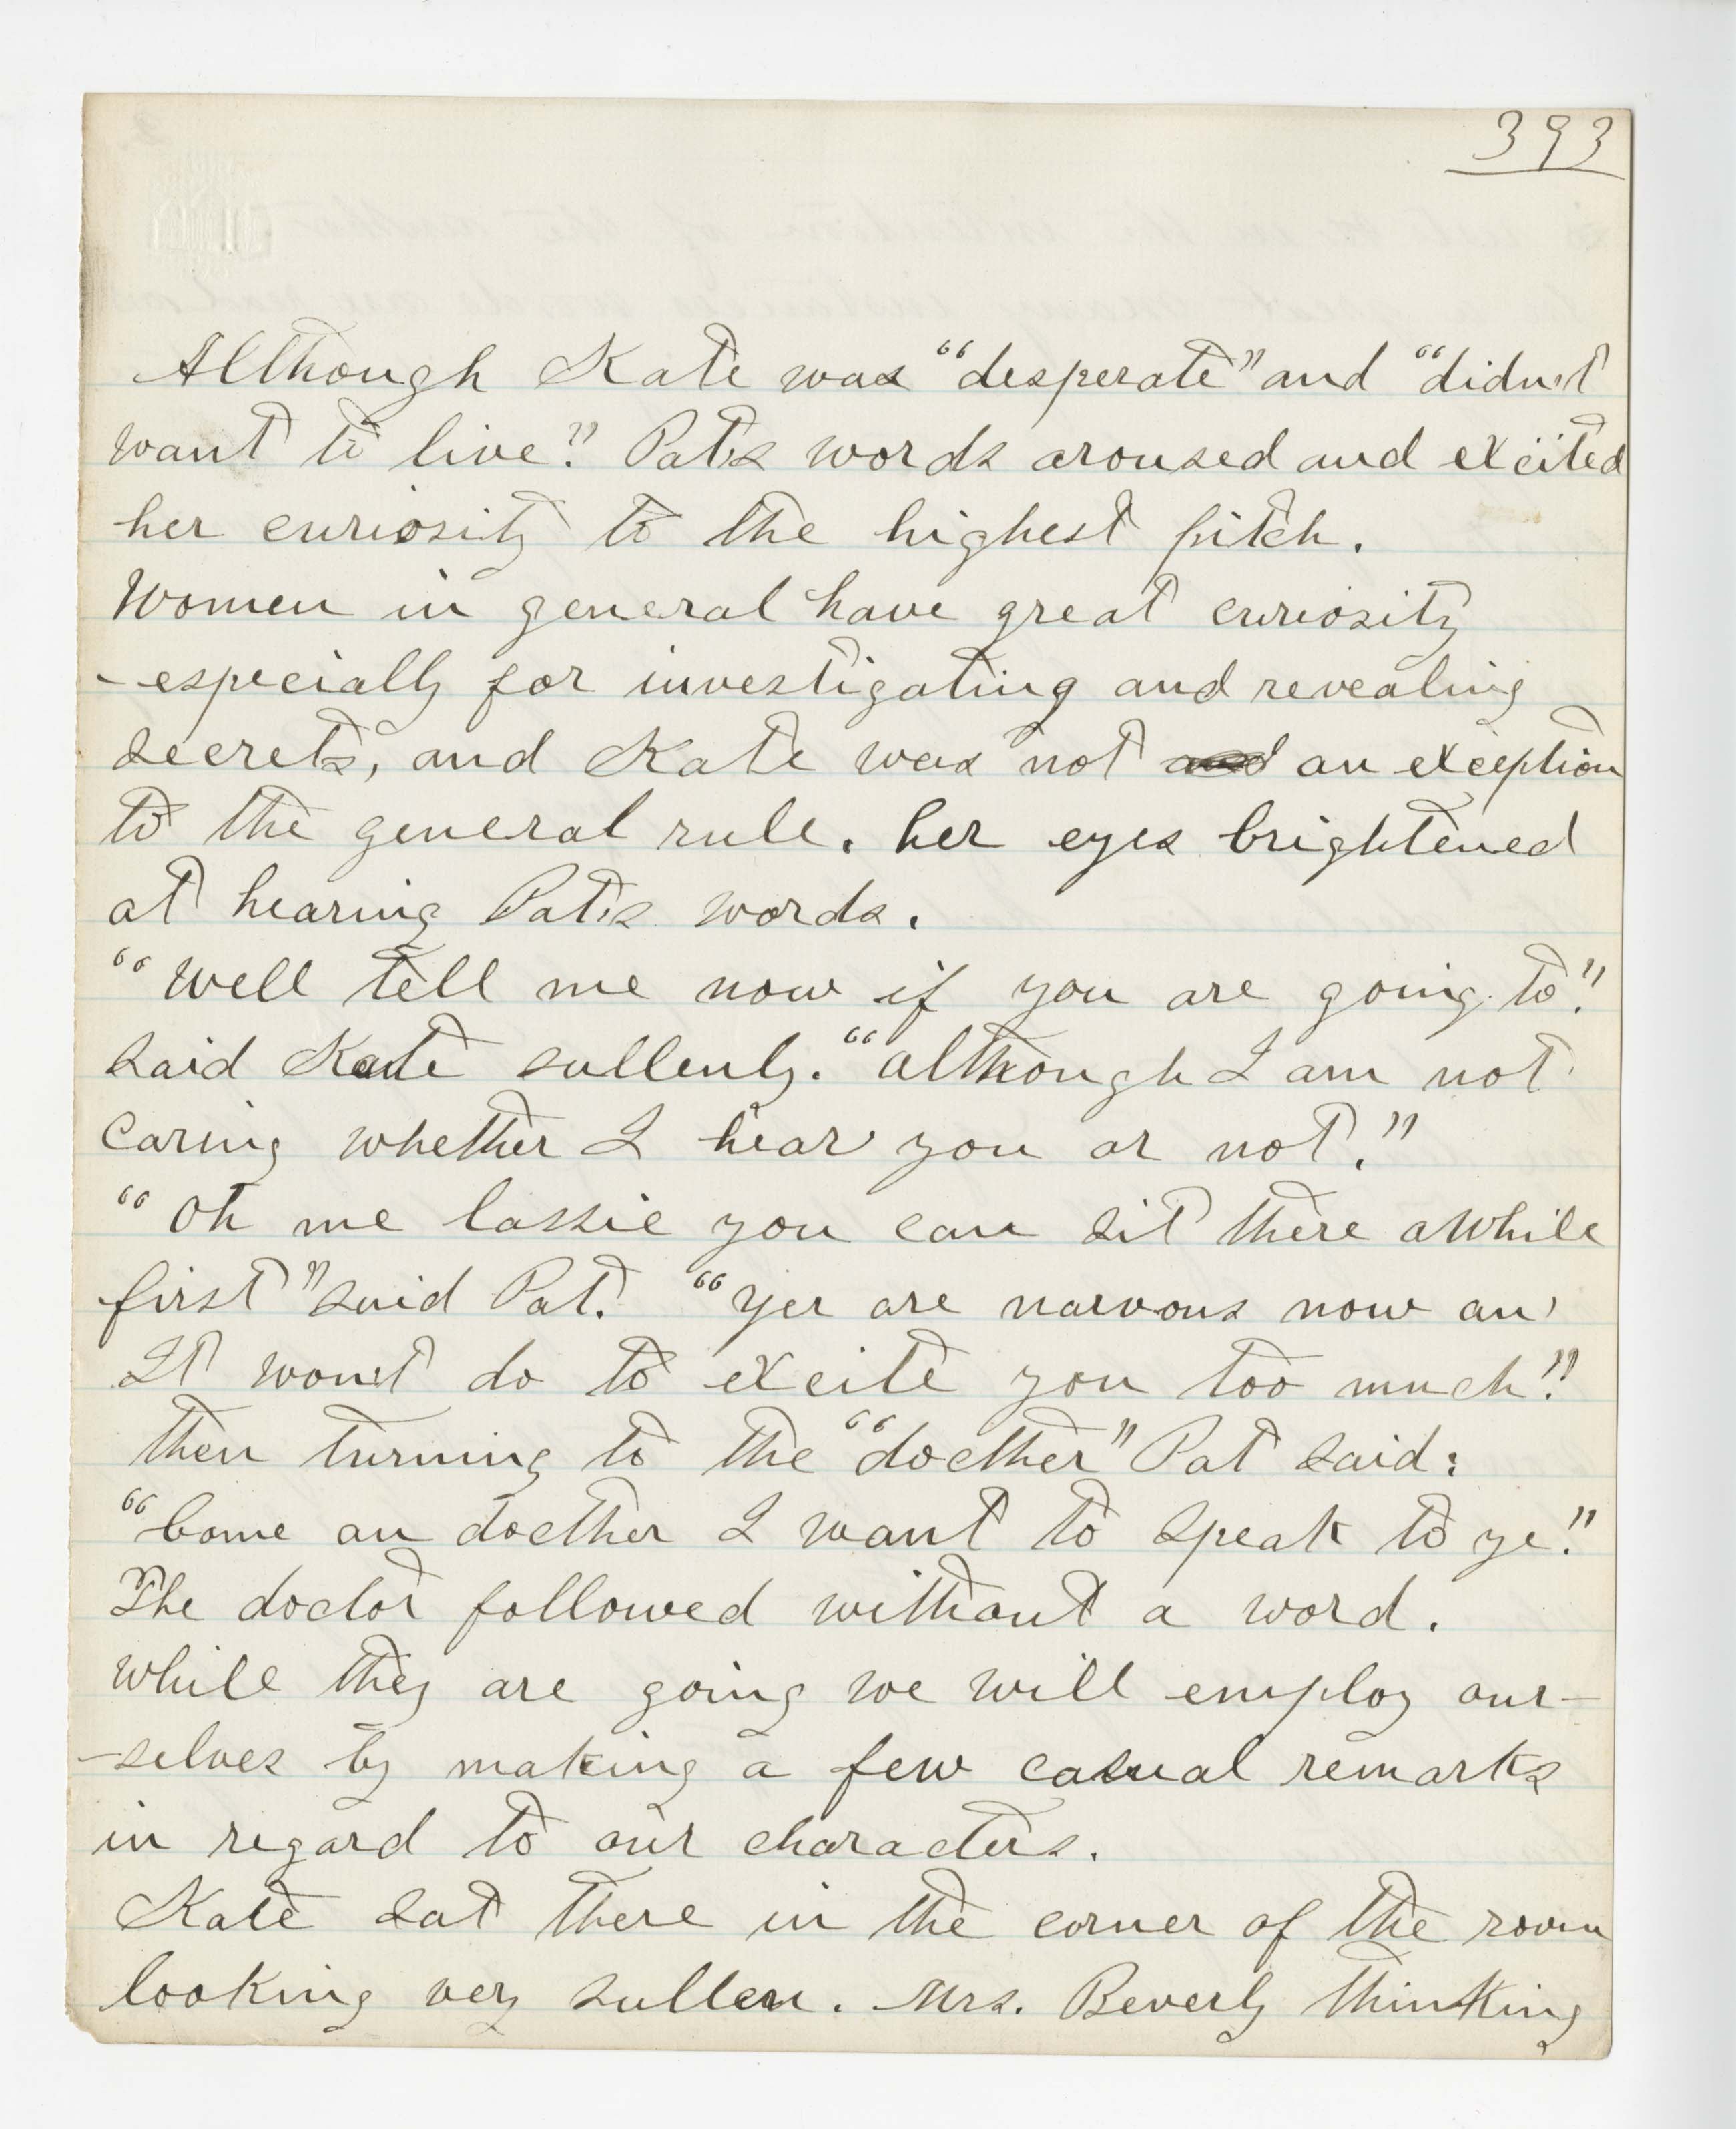 393
Although Kate was "desperate" and "didn't
want to live." Pat's words aroused and excited
her curiosity to the highest pitch.
Women in general have great curiosity
-especially for investigating and revealing
secrets, and Kate was not an exception
to the general rule. her eyes brightened
at hearing Pat's words.
"Well tell me now if you are going to."
said Kate sullenly. "although I am not
caring whether I hear you or not."
"Oh me lassie you can sit there awhile
first" said Pat. "yer are narvous now an'
It won't do to excite you too much."
then turning to the "docther" Pat said:
"Come an docther I want to speak to ye."
The doctor followed without a word.
while they are going we will employ our-
-selves by making a few casual remarks
in regard to our characters.
Kate sat there in the corner of the room
looking very sullen. Mrs. Beverly thinking